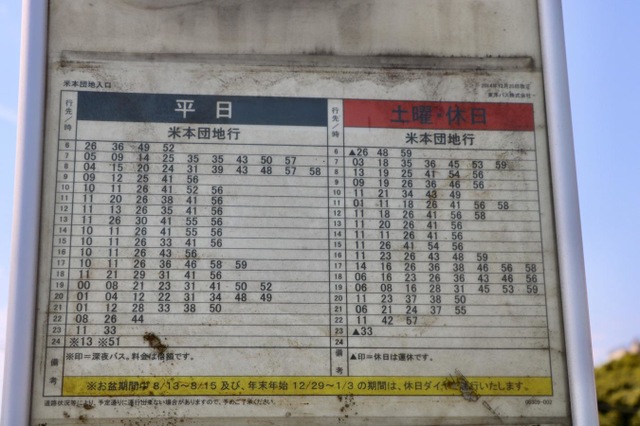 米本団地入口
行先/時 平日 行先/時 土曜・休日
米本団地行 米本団地行
6 26 36 49 52 6 ▲26 48 59
7 05 09 14 25 35 35 43 50 57 7 03 18 35 36 45 53 59
8 04 15 20 24 31 39 43 48 57 58 8 13 19 25 41 54 56
9 09 12 25 41 56 9 09 19 26 36 46 56
10 10 11 26 41 52 56 10 11 21 34 43 49
11 11 20 26 38 41 56 11 01 11 18 26 41 56 58
12 11 13 26 35 41 56 12 11 18 26 41 56 58
13 11 26 30 41 55 56 13 11 20 26 41 56
14 10 11 26 41 55 56 14 11 11 26 41 56
15 10 11 26 33 41 56 15 11 26 41 54 56
16 10 11 26 43 56 16 11 23 26 43 48 59
17 10 11 26 36 46 58 59 17 14 16 26 36 38 46 56 58
18 11 21 29 31 41 56 18 06 16 23 26 36 43 46 56
19 00 08 21 23 31 41 50 52 19 06 08 16 28 31 45 53 59
20 01 04 12 22 31 34 48 49 20 11 23 37 38 50
21 01 12 28 33 38 50 21 06 21 24 37 55
22 08 26 44 22 11 42 57
23 11 33 23 ▲33
24 ※13 ※51 24
備考 ※印=深夜バス。料金は倍額です。 備考 ▲印=休日は運休です。
※お盆期間中 8/13~8/15 及び、年末年始 12/29~1/3 の期間は、休日ダイヤで運行いたします。
道路状況等により、予定通りに運行出来ない場合がありますので、予めご了承ください。